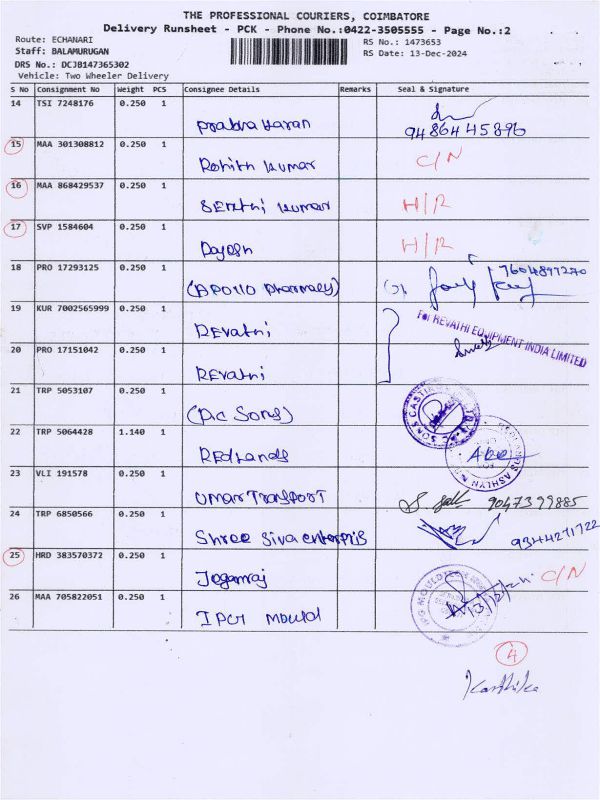 THE PROFESSIONAL COURIERS, COIMBATORE
Delivery Runsheet - PCK - Phone No.:0422-3505555 - Page No.:2
Route: ECHANARI
RS No.: 1473653
Staff: BALAMURUGAN
RS Date: 13-Dec-2024
DRS No.: DCJB147365302
Vehicle: Two Wheeler Delivery
S No Consignment No Weight PCS Consignee Details Remarks Seal & Signature
14 TSI 7248176 0.250 1
Prabha Haran 9486445896
15 MAA 301308812 0.250 1
Rohith Kumar C/N
16 MAA 868429537 0.250 1
Kumar H/R
17 SVP 1584604 0.250 1
H/R
18 PRO 17293125 0.250 1
(APOLLO Pharmacy) 7604897270
19 KUR 7002565999 0.250 1
REvathi For REVATHI EQUIPMENT INDIA LIMITED
20 PRO 17151042 0.250 1
REvathi
21 TRP 5053107 0.250 1
(P.C SONS)
22 TRP 5064428 1.140 1
REdlands
23 VLI 191578 0.250 1
UMAR TRANSPORT 9047399885
24 TRP 6850566 0.250 1
Shree Siva enterpris 9344271722
25 HRD 383570372 0.250 1
Jogamraj C/N
26 MAA 705822051 0.250 1
Mould 13/12/24
4
Karthika